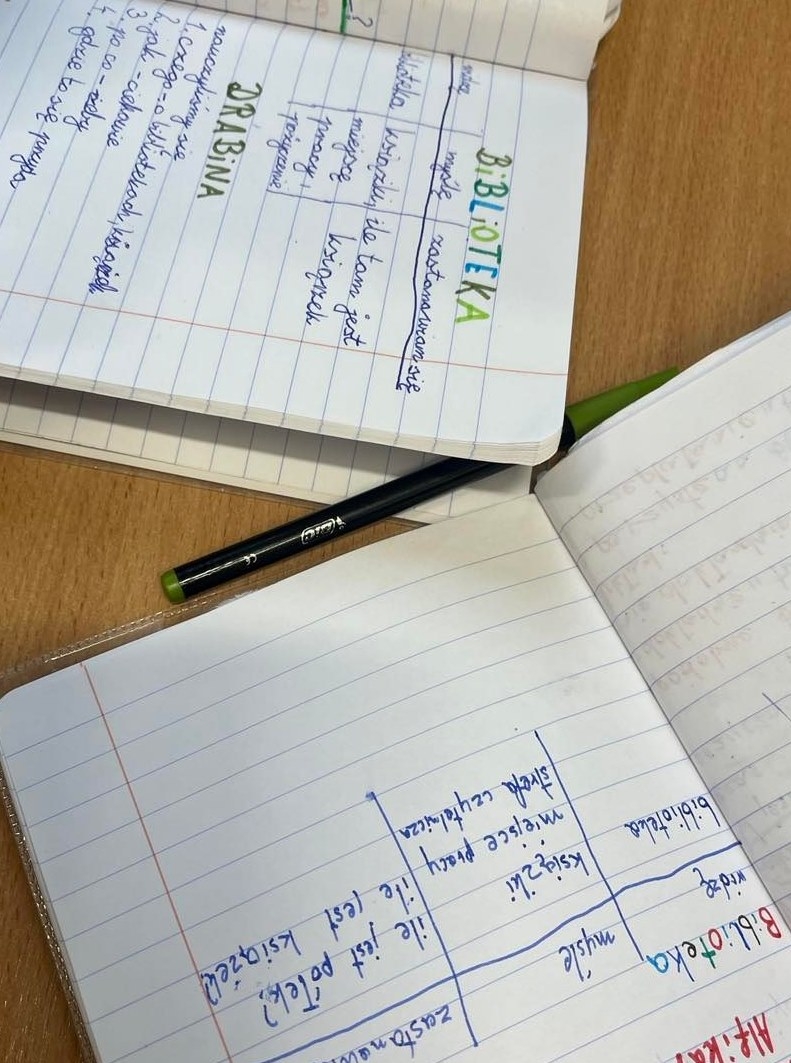 BiBLiOTEKA
widzę | myślę | zastanawiam się
książki, | ile tam jest
miejsce | książek
pracy,
DRABiNA
nauczyliśmy się
1. czego - o bibliotekach, książkach
2. jak - ciekawie
3. po co - żeby
4. gdzie to się przyda
?
BiC
CE
Biblioteka
widzę | myślę
biblioteka | książki | ile jest półek?
miejsce pracy | ile jest książek?
strefa czytelnicza